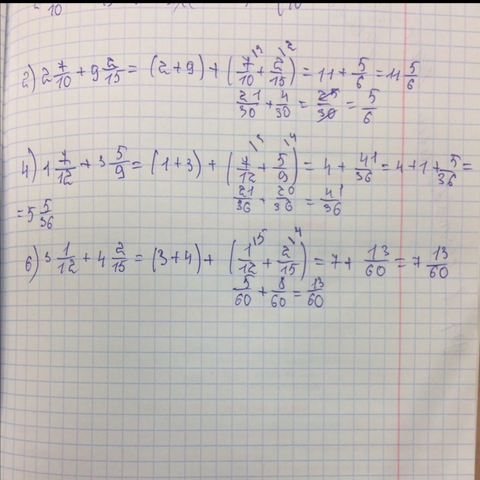 2) 2 7/10 + 9 2/15 = (2+9) + (7/10 + 2/15) = 11 + 5/6 = 11 5/6
21/30 + 4/30 = 25/30 = 5/6
4) 1 7/12 + 3 5/9 = (1+3) + (7/12 + 5/9) = 4 + 41/36 = 4+1+5/36 =
21/36 + 20/36 = 41/36
= 5 5/36
6) 3 1/12 + 4 2/15 = (3+4) + (1/12 + 2/15) = 7 + 13/60 = 7 13/60
5/60 + 8/60 = 13/60